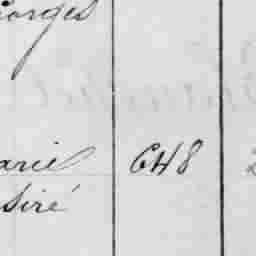 orges
arie 648
siré